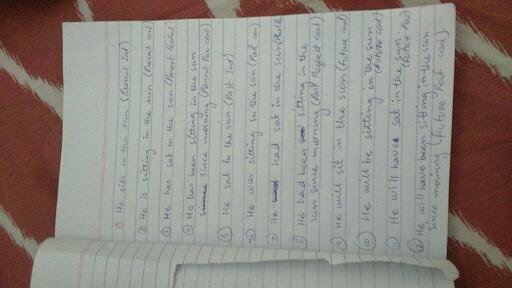 ① He sits in the sun (Present Ind)
② He is sitting in the sun (Present cont)
③ He has sat in the sun (Present Perfect)
④ He has been sitting in the sun
since morning (Present Per con)
⑤ He sat in the sun (Past Ind)
⑥ He was sitting in the sun (Past con)
⑦ He had sat in the sun (Past
⑧ He had been sitting in the
sun since morning (Past Perfect cont)
⑨ He will sit in the sun (Future ind)
⑩ He will be sitting in the sun
(Future cont)
⑪ He will have sat in the sun.
(Future Per
⑫ He will have been sitting in the sun
since morning (Future Perf cont)